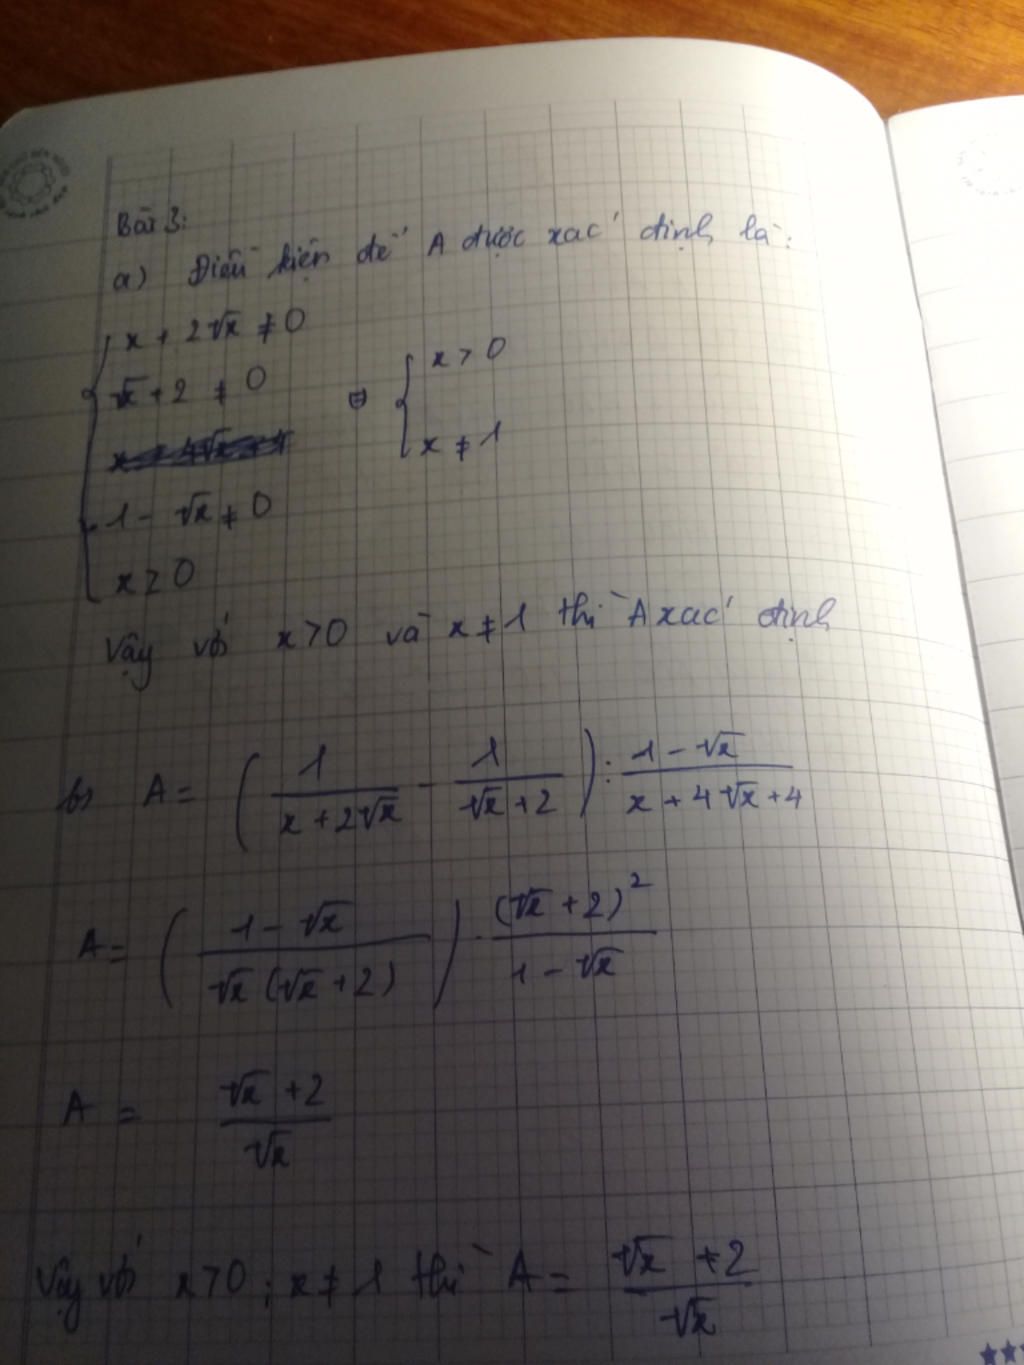 Bài 3:
a) Điều kiện để A được xác định là:
x + 2√x ≠ 0
√x + 2 ≠ 0
1 - √x ≠ 0
x ≥ 0
⇔ x > 0
x ≠ 1
Vậy với x > 0 và x ≠ 1 thì A xác định
b) A = ( 1 / (x + 2√x) - 1 / (√x + 2) ) : (1 - √x) / (x + 4√x + 4)
A = ( (1 - √x) / (√x (√x + 2)) ) . (√x + 2)² / (1 - √x)
A = (√x + 2) / √x
Vậy với x > 0 ; x ≠ 1 thì A = (√x + 2) / √x